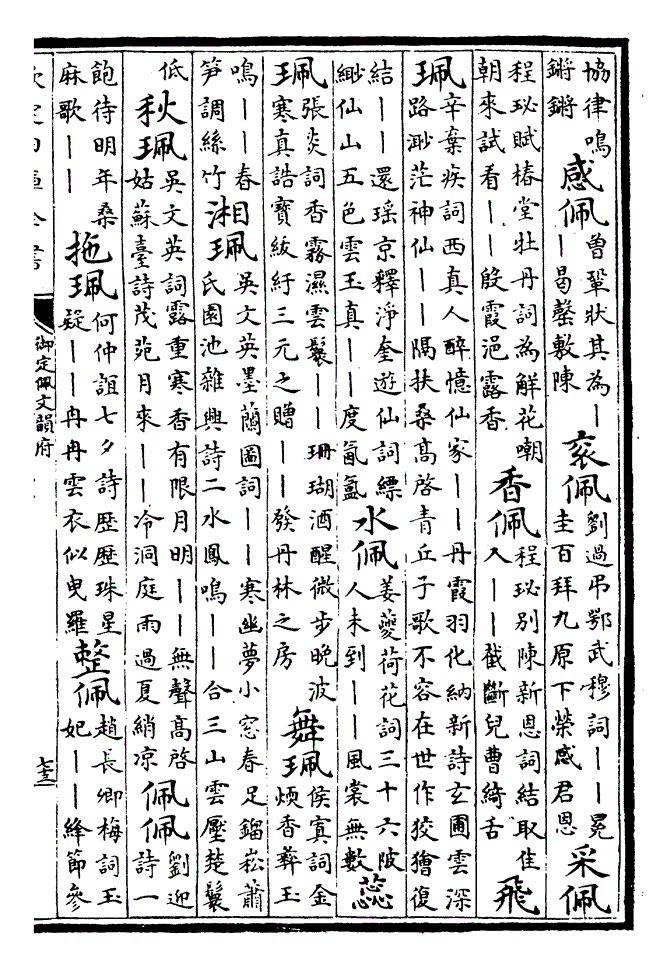 協律鳴鏘鏘 感佩 曾鞏狀其為｜｜曷罄敷陳 衮佩 劉過弔鄂武穆詞｜｜冕圭百拜九原下榮感君恩 采佩
程珌賦椿堂牡丹詞為解花嘲朝來試看｜｜殷霞浥露香 香佩 程珌別陳新恩詞結取隹人｜｜截斷兒曹綺舌 飛
珮 辛棄疾詞西真人醉憶仙家｜｜丹霞羽化納新詩玄圃雲深路渺茫神仙｜｜隅扶桑高啓青丘子歌不容在世作狡獪復
結｜｜還瑶京釋淨奎遊仙詞縹緲仙山五色雲玉真｜｜度氤氳 水佩 姜夔荷花詞三十六陂人未到｜｜風裳無數 蕊
珮 張炎詞香霧濕雲鬟｜｜珊瑚酒醒微步晚波寒真誥寶紱紆三元之贈｜｜發丹林之房 舞珮 侯寘詞金煩香彝玉
鳴｜｜春笋調絲竹 湘珮 吳文英墨蘭圖詞｜｜寒幽夢小窓春足鎦崧蕭氏園池雜興詩二水鳳鳴｜｜合三山雲壓楚鬟
低 秋珮 吳文英詞露重寒香有限月明｜｜無聲高啓姑蘇臺詩茂苑月來｜｜冷洞庭雨過夏綃凉 佩佩 劉迎詩一
飽待明年桑麻歌｜｜ 拖珮 何仲誼七夕詩歴歴珠星疑｜｜冉冉雲衣似曳羅 整佩 趙長卿梅詞玉妃｜｜絳節參
欽定四庫全書
御定佩文韻府